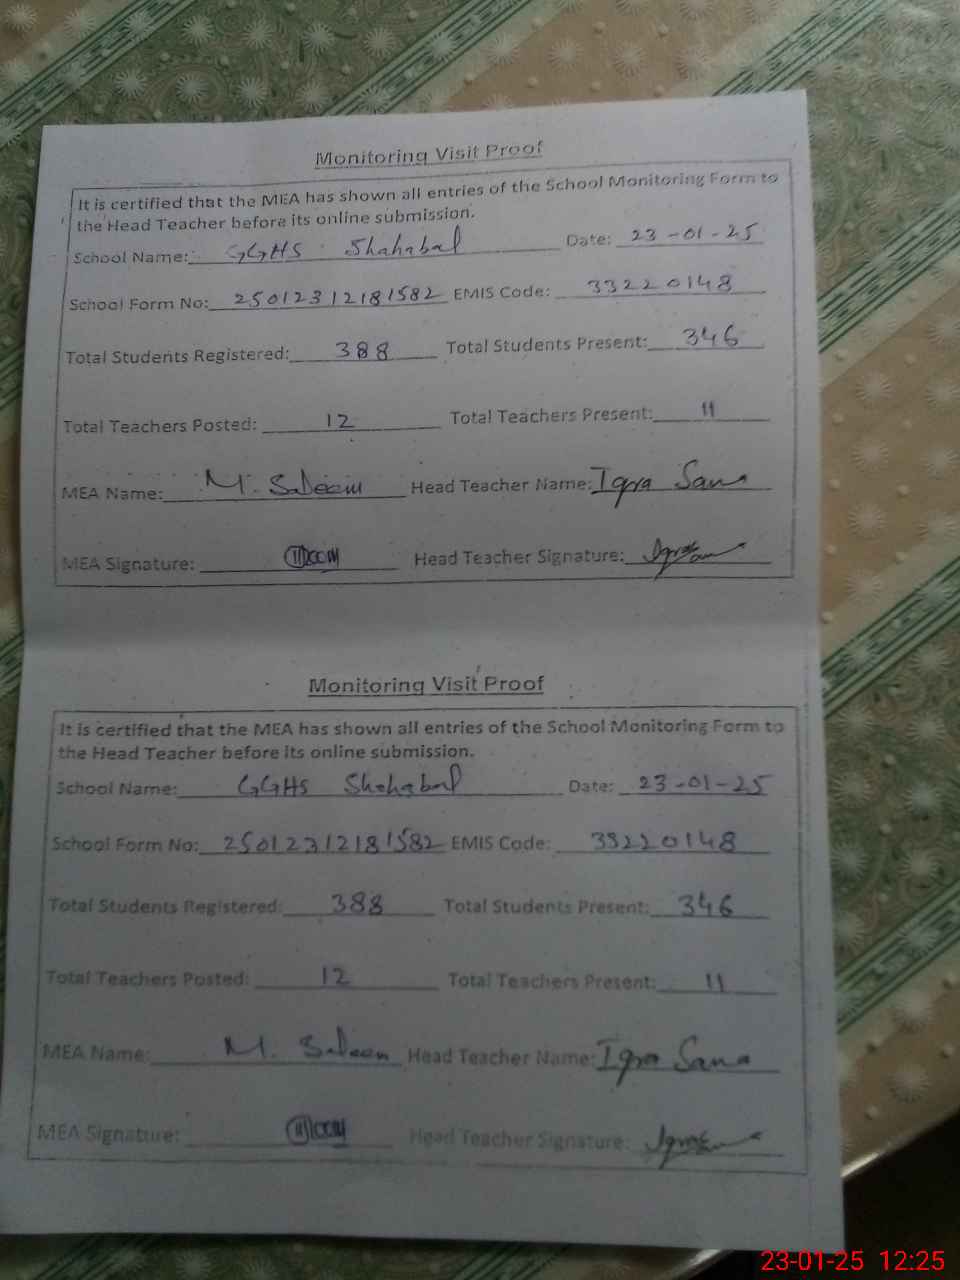 Monitoring Visit Proof
It is certified that the MEA has shown all entries of the School Monitoring Form to
the Head Teacher before its online submission.
School Name: GGHS Shahabal Date: 23-01-25
School Form No: 25012312181582 EMIS Code: 33220148
Total Students Registered: 388 Total Students Present: 346
Total Teachers Posted: 12 Total Teachers Present: 11
MEA Name: M. Saleem Head Teacher Name: Iqra Sana
MEA Signature: Head Teacher Signature: Iqra
Monitoring Visit Proof
It is certified that the MEA has shown all entries of the School Monitoring Form to
the Head Teacher before its online submission.
School Name: GGHS Shahabal Date: 23-01-25
School Form No: 25012312181582 EMIS Code: 33220148
Total Students Registered: 388 Total Students Present: 346
Total Teachers Posted: 12 Total Teachers Present: 11
MEA Name: M. Saleem Head Teacher Name: Iqra Sana
MEA Signature: Head Teacher Signature: Iqra
23-01-25 12:25